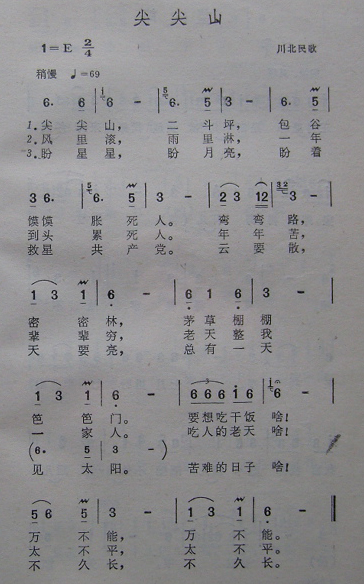 尖尖山
1=E 2/4
川北民歌
稍慢 ♩=69
6· 6 | 6 - | 6· 5 | 3 - | 6· 5 |
1.尖尖山，二斗坪，包谷
2.风里滚，雨里淋，一年
3.盼星星，盼月亮，盼着
3 6· | 6 5 | 3 - | 2 3 12 | 3 - |
馍馍胀死人。弯弯路，
到头累死人。年年苦，
救星共产党。云要散，
1 3 1 | 6 - | 1 6 1 6 | 3 - |
密密林，茅草棚棚
辈辈穷，老天整我
天要亮，总有一天
1 3 1 | 6 - | 6 6 6 1·6 | 6 - |
笆笆门。要想吃干饭啥！
一家人。吃人的老天啥！
(6· 5 | 3 - )
见太阳。苦难的日子啥！
5 6 5 | 3 - | 1 3 1 | 6 - |
万不能，万不能。
太不平，太不平。
不久长，不久长。